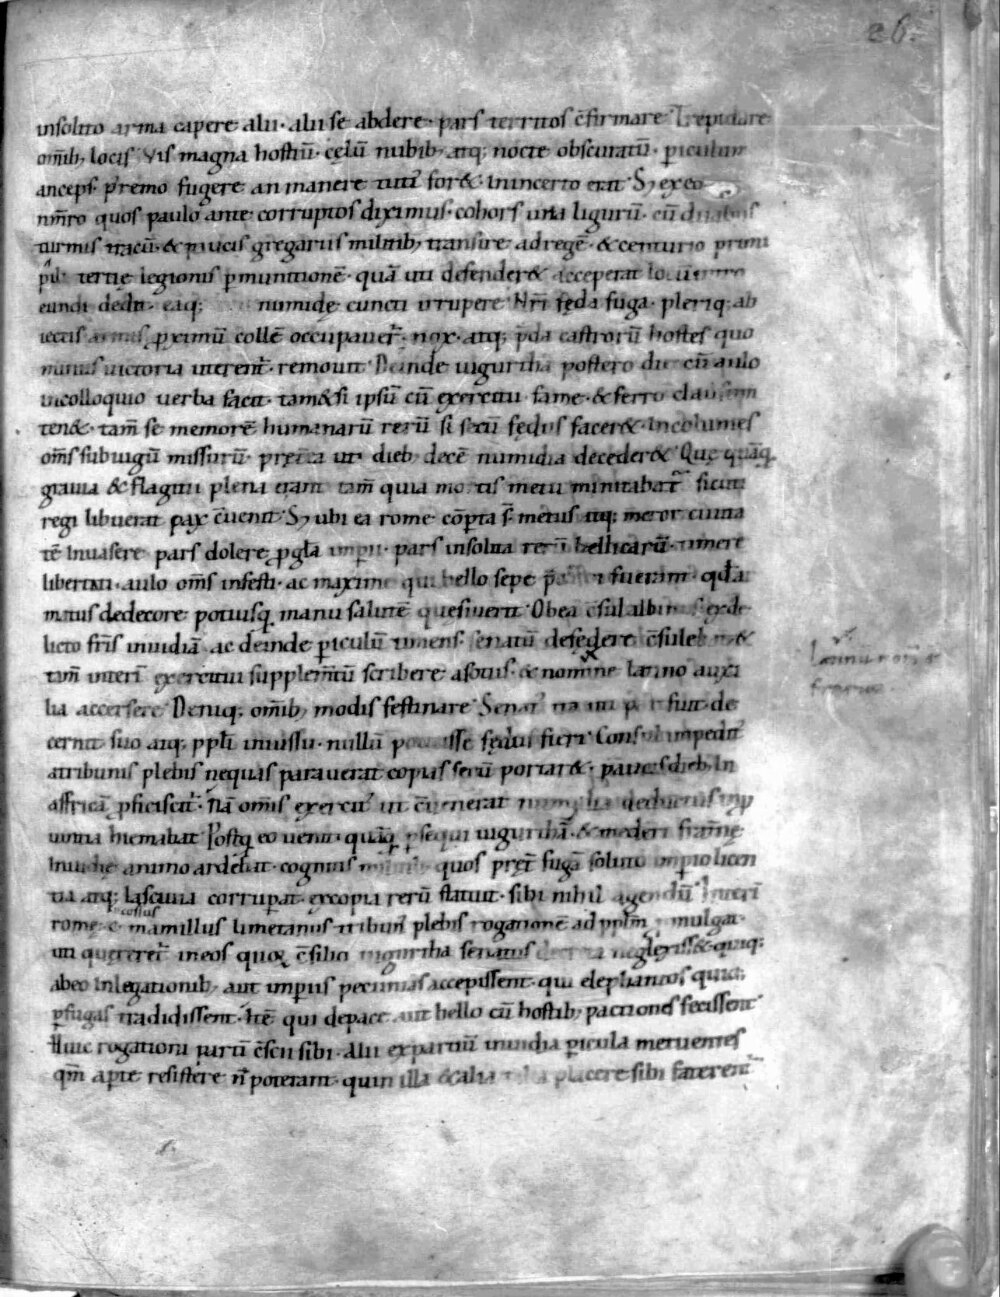 26.
insolito arma capere alii · alii se abdere · pars territos c̄firmare Trepidare
om̄ib; locis Vis magna hostiū · celū nubib; atq; nocte obscuratū · periculum
anceps p̄remo fugere an manere tuti᷒ for& · In incerto erat S; ex eo
num̄ro quos paulo ante corruptos diximus · cohors una ligurū · cū duabus
turmis tracū · & paucis gregariis militib; transire ad regē · & centurio primi
pili tertię legionis p munitionē · quā uti defender& acceperat locū
eundi dedit · eaq; numidę cuncti irrupere Nr̄i fęda fuga · pleriq; ab
iectis armis proximū collē occupauer̄ · nox · atq; p̄da castrorū hostes quo
minus uictoria uterent᷒ · remorata Deinde iugurtha postero die cū aulo
in colloquio uerba facit · tam&si ipsū cū exercitu fame · & ferro clausum
ten& · tam̄ se memorē humanarū rerū si secū fędus facer& · Incolumes
om̄s sub iugū missurū · pret̄ea uti dieb; decē numidia deceder& Quę quāq̄
grauia & flagitii plena erant tam̄ quia mortis metu minitabant᷒ sicuti
regi libuerat pax c̄uenit S; ubi ea rome cōperta s̄ metus atq; meror ciuita
tē Inuasere pars dolere p gl̄a imperii · pars insolita rerū bellicarū · timere
libertati · aulo om̄s infesti · ac maxime qui bello sepe fuerant · qd̄ ar
matus dedecore potiusq̄ manu salutē quesiuerit Ob ea c̄sul albinus ex de
licto fr̄is inuidiā ac deinde periculū timens · senatū de fędere c̄sulebat &
tam̄ interī exercitui supplem̄tū scribere a sociis · & nomine latino auxi
lia accersere Deniq; om̄ib; modis festinare Senat᷒ fuit de
cernit suo atq; ppl̄i iniussu · nullū potuisse fędus fieri Consul impedit᷒
a tribunis plebis nequas parauerat copias secū portar& · paucis dieb; In
affricā pficiscit᷒ · Nā om̄is exercit᷒ ut c̄uenerat numidia deductus
uintia hiemabat Postq̄ eo uenit · quāq̄ psequi iugurthā · & mederi fraternę
Inuidie animo ardebat · cognitis militib; quos pret̄ fugā soluto imperio licen
tia atq; lasciuia corruperat · ex copia rerū statuit · sibi nihil agendū Interī
romę c mamillus limetanus tribun᷒ plebis rogationē ad ppl̄m pmulgat ·
cossus
uti quereret᷒ in eos quoꝝ c̄silio iugurtha senatus neglexiss& · quiq;
ab eo In legationib; aut imperiis pecunias accepissent · qui elephantos quiq;
perfugas tradidissent · Itē qui de pace aut bello cū hostib; pactiones fecissent
Huic rogationi partī c̄scii sibi · Alii ex partiū inuidia pericula metuentes
qm̄ aperte resistere n̄ poterant · quin illa & alia talia placere sibi faterent᷒